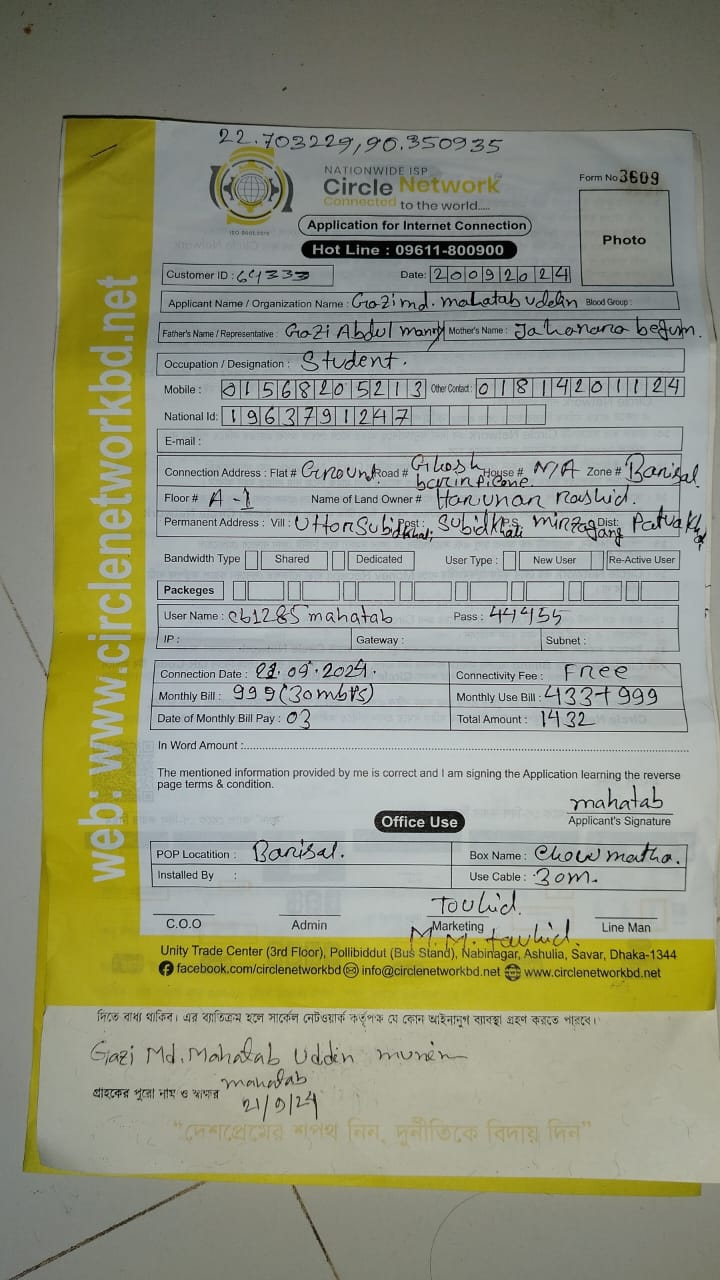 22.703229,90.350935
NATIONWIDE ISP
Circle Network
Connected to the world.....
ISO 9001:2015
Form No 3609
Application for Internet Connection
Hot Line : 09611-800900
Photo
Customer ID : 64333 Date: 20092024
Applicant Name / Organization Name : Gazi md. mahatab uddin Blood Group :
Father's Name / Representative : Gazi Abdul Mother's Name : Jahanara begum.
Occupation / Designation : Student.
Mobile : 01568205213 Other Contact : 01814201124
National Id: 1963791247
E-mail :
Connection Address : Flat # Ground Road # Ghosh House # N/A Zone # Barisal
Floor # A-1 Name of Land Owner # Harunar Rashid.
Permanent Address : Vill : Uttor Subidkhali; Post : Subidkhali PS: mirzagang Dist:
Bandwidth Type Shared Dedicated User Type : New User Re-Active User
Packeges
User Name : cb1285mahatab Pass : 44455
IP : Gateway : Subnet :
Connection Date : 21.09.2024. Connectivity Fee : Free
Monthly Bill : 999(30mbps) Monthly Use Bill : 433+999
Date of Monthly Bill Pay : 03 Total Amount : 1432
In Word Amount :
The mentioned information provided by me is correct and I am signing the Application learning the reverse
page terms & condition.
mahatab
Applicant's Signature
Office Use
POP Locatition : Barisal. Box Name : Chowmatha.
Installed By : Use Cable : 30m.
Touhid.
C.O.O Admin Marketing Line Man
M.M. touhid.
Unity Trade Center (3rd Floor), Pollibiddut (Bus Stand), Nabinagar, Ashulia, Savar, Dhaka-1344
facebook.com/circlenetworkbd info@circlenetworkbd.net www.circlenetworkbd.net
web: www.circlenetworkbd.net
দিতে বাধ্য থাকিব। এর ব্যতিক্রম হলে সার্কেল নেটওয়ার্ক কর্তৃপক্ষ যে কোন আইনানুগ ব্যবস্থা গ্রহণ করতে পারবে।
Gazi Md. Mahatab Uddin munim
mahatab
গ্রাহকের পুরো নাম ও স্বাক্ষর
21/9/24
"দেশপ্রেমের শপথ নিন, দুর্নীতিকে বিদায় দিন"